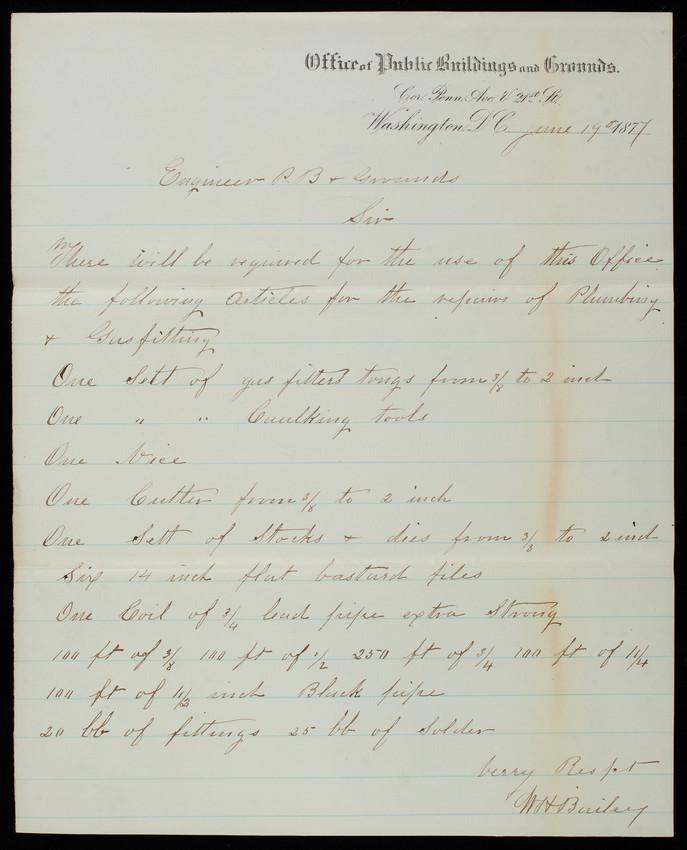 Office of Public Buildings and Grounds.
Cor. Penn. Ave. & 21st St.
Washington, D.C. June 19th 1877
Engineer P. B & Grounds
Sir
There will be required for the use of this Office
the following articles for the repairs of Plumbing
& Gasfitting
One Sett of gas fitters tongs from 3/8 to 2 inch
One " " Caulking tools
One Vice
One Cutter from 3/8 to 2 inch
One Sett of Stocks & dies from 3/8 to 2 inch
Six 14 inch flat bastard files
One Coil of 3/4 lead pipe extra Strong
100 ft of 3/8 100 ft of 1/2 250 ft of 3/4 100 ft of 1 1/4
100 ft of 1 1/2 inch Black pipe
20 lb of fittings 25 lb of Solder
verry Respt
W H Bailey